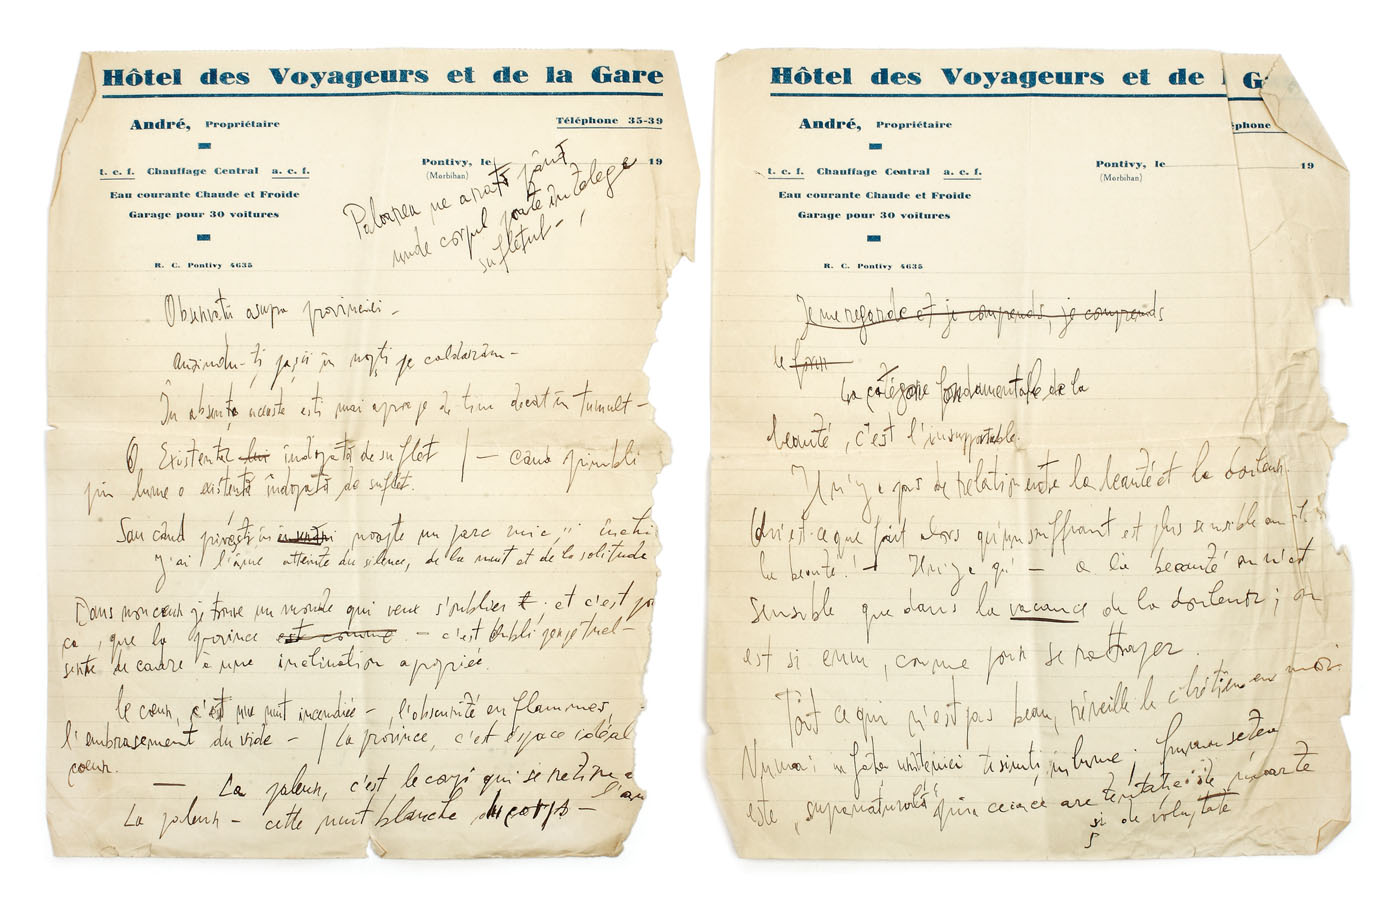 Hôtel des Voyageurs et de la Gare
André, Propriétaire
Téléphone 35-39
t. c. f. Chauffage Central a. c. f.
Pontivy, le 19
(Morbihan)
Eau courante Chaude et Froide
Garage pour 30 voitures
R. C. Pontivy 4635
Paloarea ne arată până
unde corpul poate înțelege
sufletul —
Observatii asupra provinciei —
auzindu-ți pașii în nopți pe caldarâm —
În absența aceasta ești mai aproape de tine decât în tumult —
O Existență lui îndopată de suflet — când plimbi
prin lume o existență îndopată de suflet.
Sau când noapte un parc mic
j'ai l'âme atteinte du silence, de la nuit et de la solitude
Dans mon cœur je trouve un monde qui veux s'oublier ; et c'est
ça, que la province est comme — c'est l'oubli perpétuel —
sorte de cadre à une inclination apropriée.
Le cœur, c'est une nuit incendiée — l'obscurité en flammes,
l'embrasement du vide — / La province, c'est l'espace idéal
cœur.
— La pâleur, c'est le corps qui se retire
La pâleur — cette nuit blanche du corps —
Hôtel des Voyageurs et de G
André, Propriétaire
éphone
t. c. f. Chauffage Central a. c. f.
Pontivy, le 19
(Morbihan)
Eau courante Chaude et Froide
Garage pour 30 voitures
R. C. Pontivy 4635
Je me regarde et je comprends, je comprends
le
La catégorie fondamentale de la
beauté, c'est l'insupportable.
Il n'y a pas de relation entre la beauté et la douleur.
Qu'est-ce que fait alors qu'un souffrant est plus sensible
la beauté? — Il n'y a qu'à — à la beauté on n'est
sensible que dans la vacance de la douleur ; on
est si ému, comme pour se rattraper.
Tout ce qui n'est pas beau, réveille le chrétien en moi.
Numai în fața te simți în lume ; frumusețea
este „supranaturală" prin ceeace are de moarte
si de voluptate